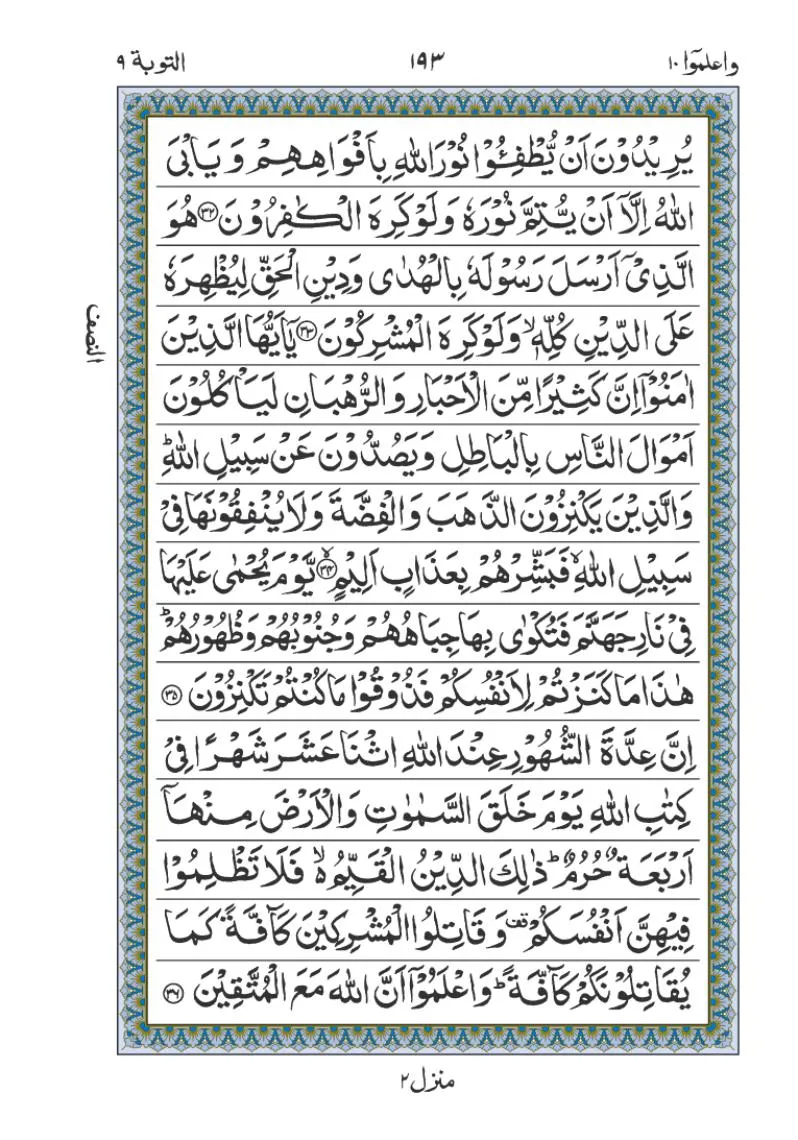 واعلموٓا ١٠
١٩٣
التوبة ٩
يُرِيْدُوْنَ اَنْ يُّطْفِـُٔوْا نُوْرَ اللّٰهِ بِاَفْوَاهِهِمْ وَيَاْبَى
اللّٰهُ اِلَّاۤ اَنْ يُّتِمَّ نُوْرَهٗ وَلَوْ كَرِهَ الْكٰفِرُوْنَ ۝٣٢ هُوَ
الَّذِيْۤ اَرْسَلَ رَسُوْلَهٗ بِالْهُدٰى وَدِيْنِ الْحَقِّ لِيُظْهِرَهٗ
عَلَى الدِّيْنِ كُلِّهٖۙ وَلَوْ كَرِهَ الْمُشْرِكُوْنَ ۝٣٣ يٰۤاَيُّهَا الَّذِيْنَ
اٰمَنُوْۤا اِنَّ كَثِيْرًا مِّنَ الْاَحْبَارِ وَالرُّهْبَانِ لَيَاْكُلُوْنَ
اَمْوَالَ النَّاسِ بِالْبَاطِلِ وَيَصُدُّوْنَ عَنْ سَبِيْلِ اللّٰهِؕ
وَالَّذِيْنَ يَكْنِزُوْنَ الذَّهَبَ وَالْفِضَّةَ وَلَا يُنْفِقُوْنَهَا فِيْ
سَبِيْلِ اللّٰهِۙ فَبَشِّرْهُمْ بِعَذَابٍ اَلِيْمٍ ۝٣٤ۙ يَّوْمَ يُحْمٰى عَلَيْهَا
فِيْ نَارِ جَهَنَّمَ فَتُكْوٰى بِهَا جِبَاهُهُمْ وَجُنُوْبُهُمْ وَظُهُوْرُهُمْؕ
هٰذَا مَا كَنَزْتُمْ لِاَنْفُسِكُمْ فَذُوْقُوْا مَا كُنْتُمْ تَكْنِزُوْنَ ۝٣٥
اِنَّ عِدَّةَ الشُّهُوْرِ عِنْدَ اللّٰهِ اثْنَا عَشَرَ شَهْرًا فِيْ
كِتٰبِ اللّٰهِ يَوْمَ خَلَقَ السَّمٰوٰتِ وَالْاَرْضَ مِنْهَاۤ
اَرْبَعَةٌ حُرُمٌؕ ذٰلِكَ الدِّيْنُ الْقَيِّمُ ۙ۬ فَلَا تَظْلِمُوْا
فِيْهِنَّ اَنْفُسَكُمْ ࣞ وَقَاتِلُوا الْمُشْرِكِيْنَ كَآفَّةً كَمَا
يُقَاتِلُوْنَكُمْ كَآفَّةًؕ وَاعْلَمُوْۤا اَنَّ اللّٰهَ مَعَ الْمُتَّقِيْنَ ۝٣٦
النصف
منزل ٢